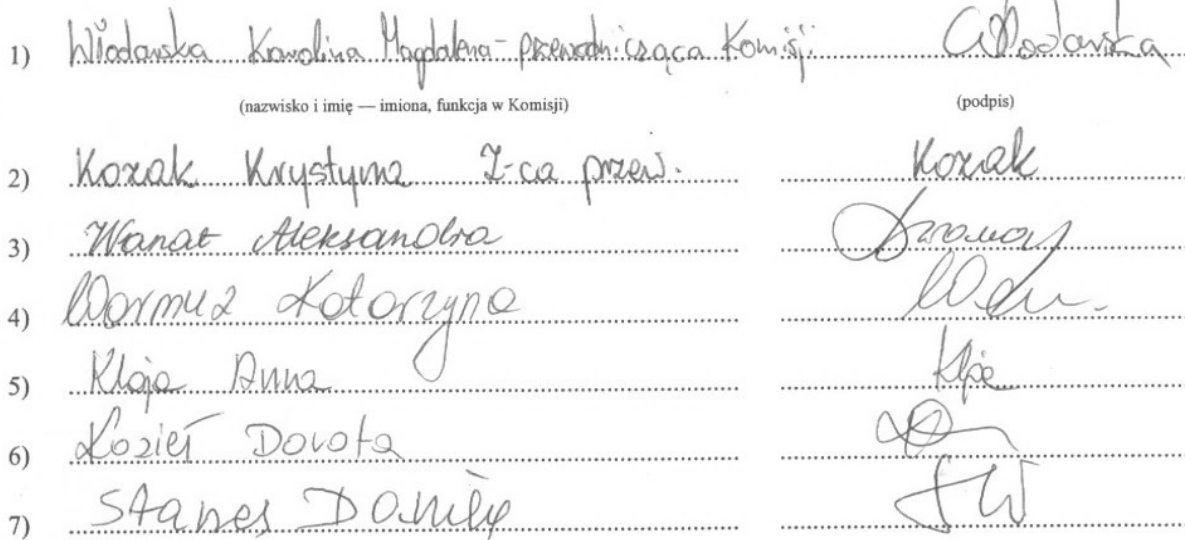 1) Włodawska Karolina Magdalena - przewodnicząca Komisji Włodawska
(nazwisko i imię — imiona, funkcja w Komisji) (podpis)
2) Kozak Krystyna Z-ca przew. Kozak
3) Wanat Aleksandra
4) Warmuz Katarzyna
5) Kloja Anna
6) Kozieł Dorota
7)